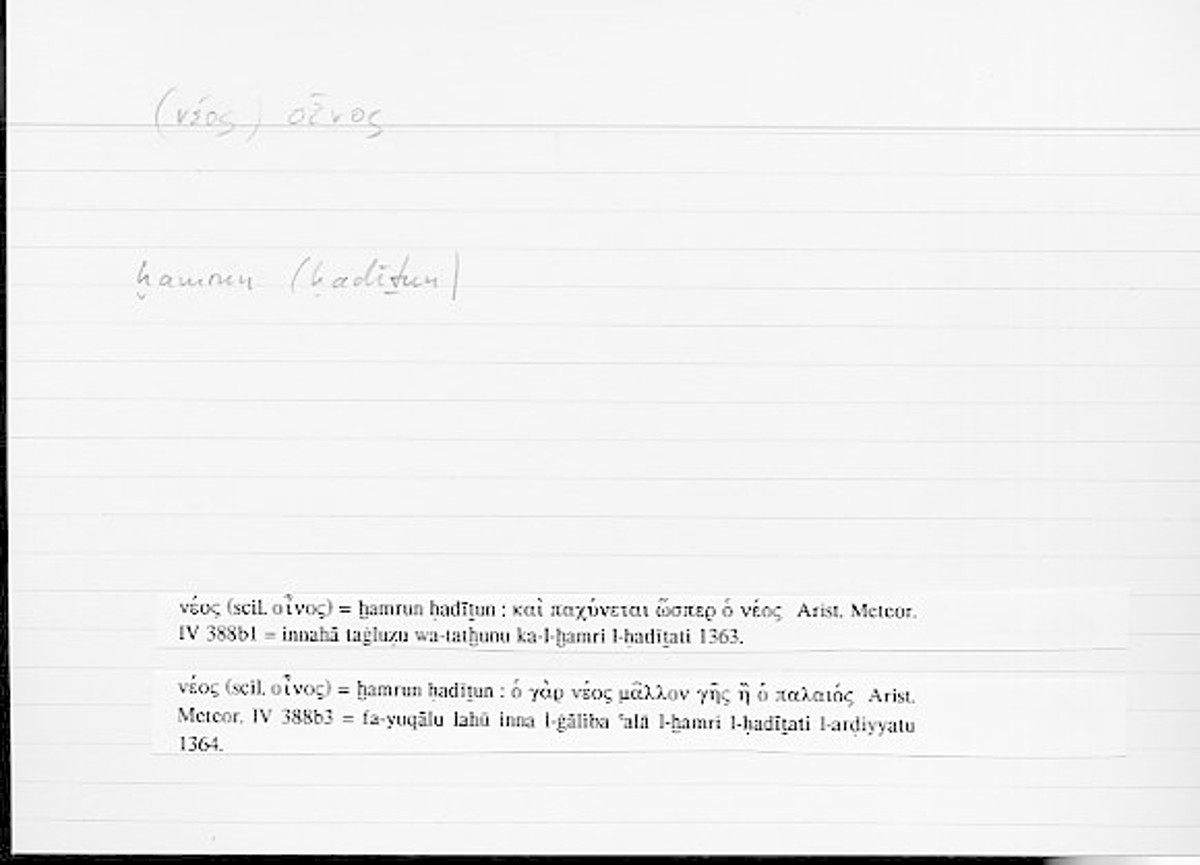 (νέος) οἶνος
ḫamrun (ḥadīṯun)
νέος (scil. οἶνος) = ḫamrun ḥadīṯun : καὶ παχύνεται ὥσπερ ὁ νέος Arist. Meteor.
IV 388b1 = innahā taġluẓu wa-taṯḫunu ka-l-ḫamri l-ḥadīṯati 1363.
νέος (scil. οἶνος) = ḫamrun ḥadīṯun : ὁ γὰρ νέος μᾶλλον γῆς ἢ ὁ παλαιός Arist.
Meteor. IV 388b3 = fa-yuqālu lahū inna l-ġāliba ʿalā l-ḫamri l-ḥadīṯati l-arḍiyyatu
1364.